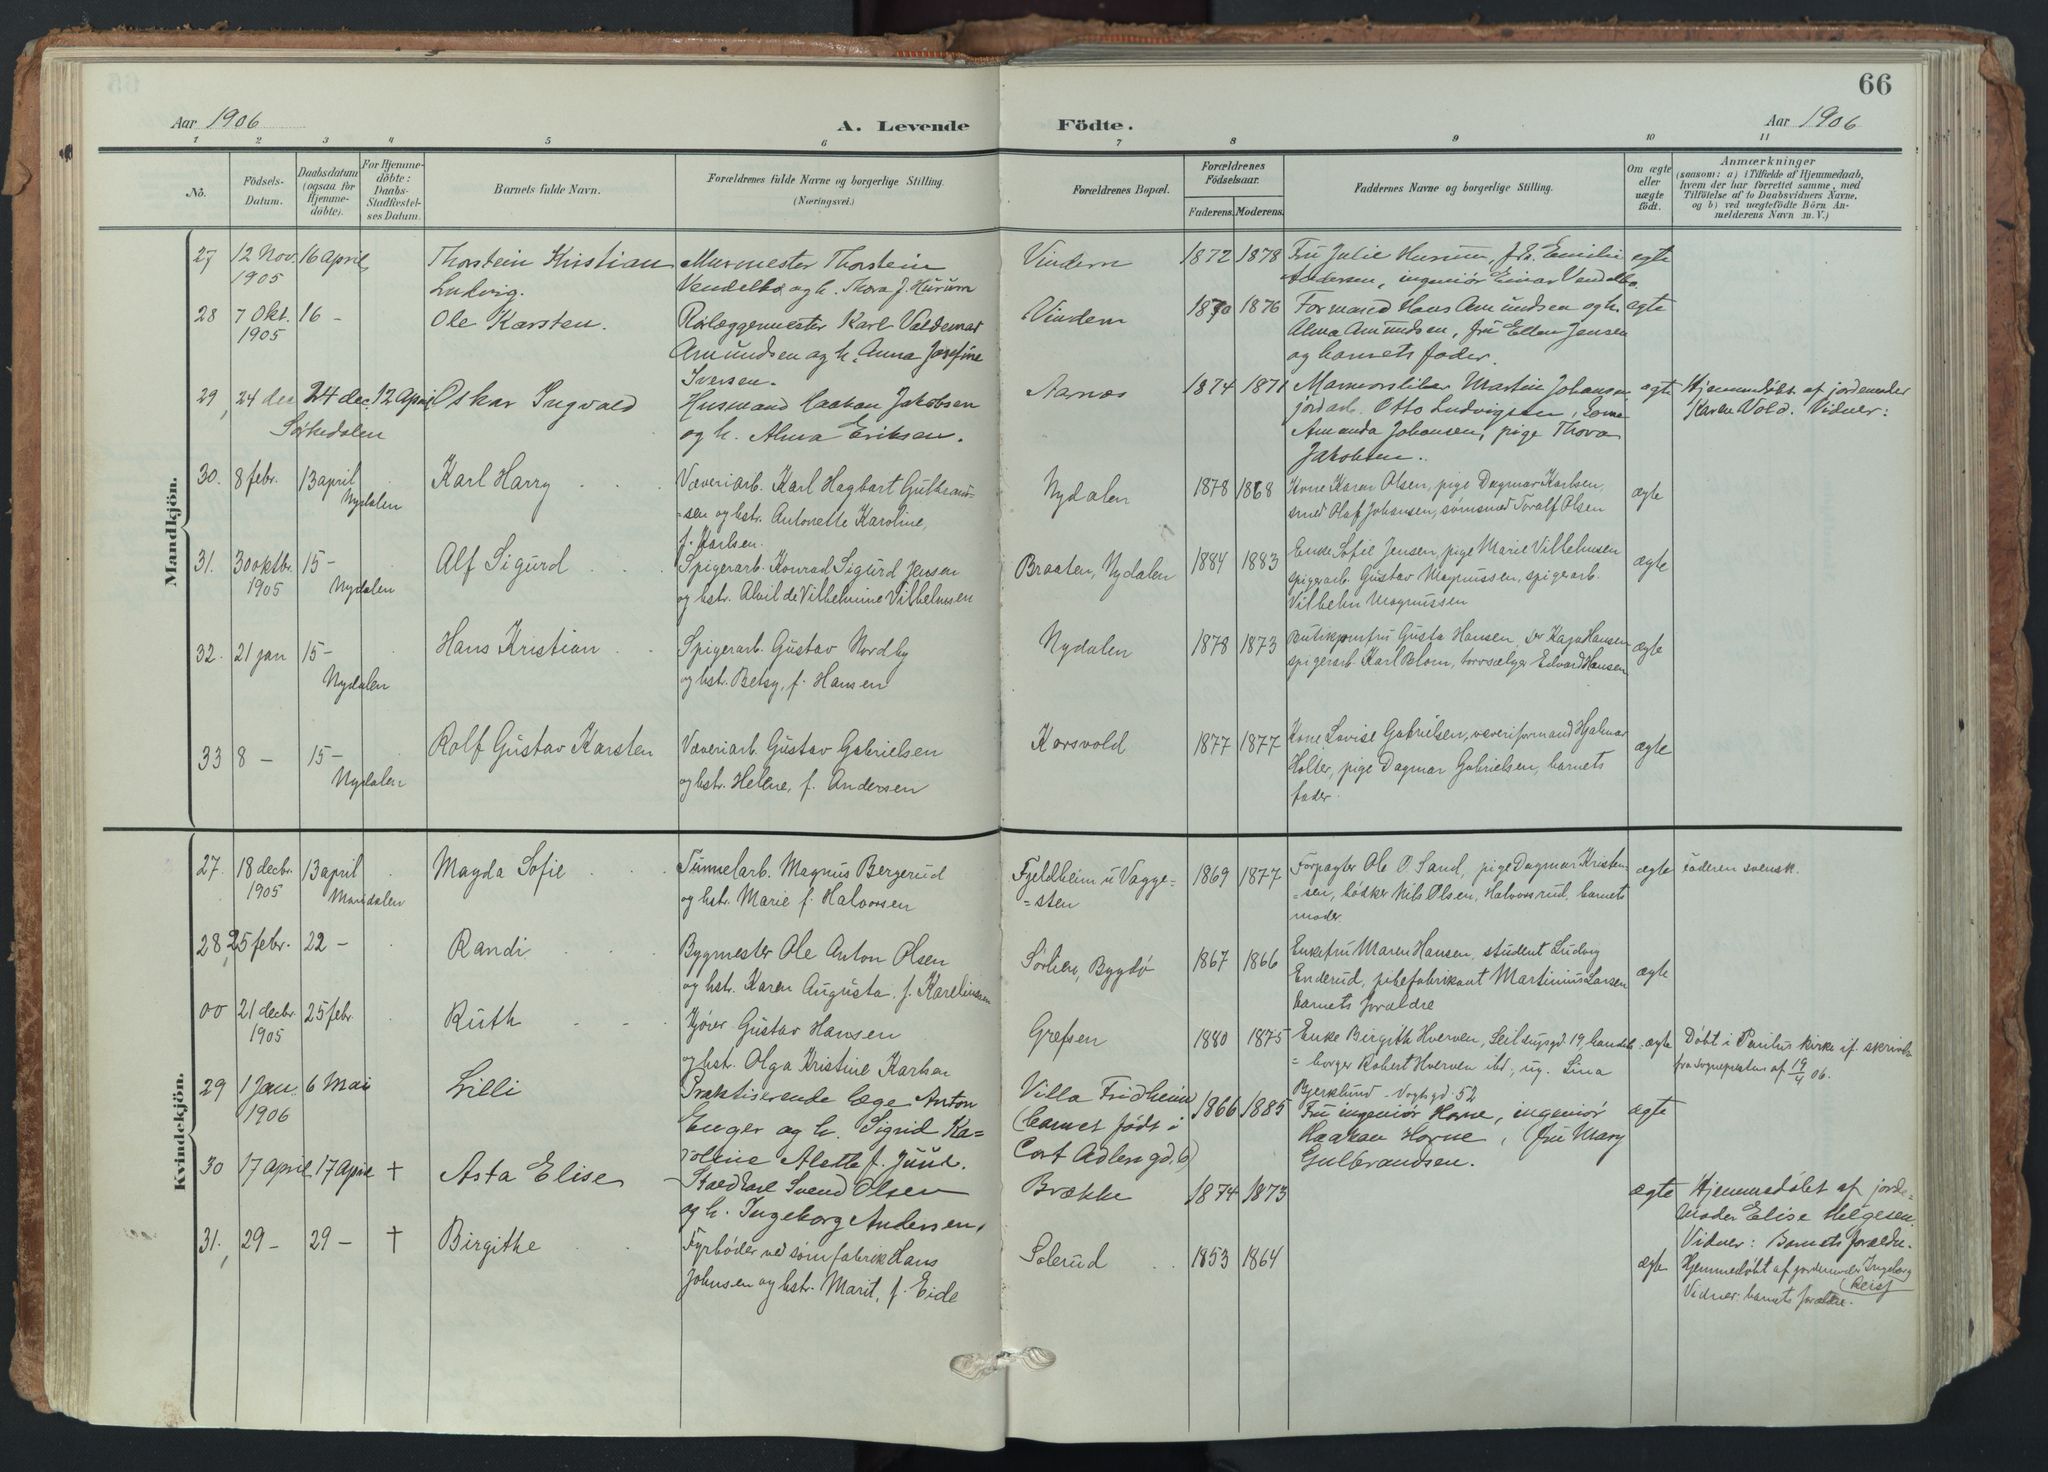 66
Aar 1906
A. Levende Födte.
Aar 1906
1 2 3 4 5 6 7 8 9 10 11
No.
Födsels-Datum.
Daabsdatum (ogsaa for Hjemmedöbte).
For Hjemmedöbte: Daabs-Stadfæstelses Datum.
Barnets fulde Navn.
Forældrenes fulde Navne og borgerlige Stilling.
(Næringsvei.)
Forældrenes Bopæl.
Forældrenes Födselsaar.
Faderens. Moderens.
Faddernes Navne og borgerlige Stilling.
Om ægte eller uægte födt.
Anmærkninger
(saasom: a) i Tilfælde af Hjemmedaab,
hvem der har forrettet samme, med
Tilföielse af to Daabsvidners Navne,
og b) ved uægtefödte Börn An-
melderens Navn m. V.)
Mandkjön.
27 12 Nov. 1905 16 April Thorstein Kristian Ludvig. Murmester Thorstein
Vendelbo og h. Thora f. Husum Vindern 1872 1878 Fru Julie Husum, frk. Emilie
Andersen, ingeniør Einar Vendelbo. egte
28 7 Okt. 1905 16 – Ole Karsten. Rørlæggermester Karl Valdemar
Amundsen og h. Anna Josefine
Iversen. Vindern 1870 1876 Formand Hans Amundsen og h.
Alma Amundsen, fru Ellen Jensen
og barnets fader. egte
29, 24 dec 24 dec. 12 April Sørkedalen Oskar Ingvald Husmand Haakon Jakobsen
og h. Alma Eriksen. Aarnæs 1874 1871 Marmorsliber Martin Johansen
jordarb. Otto Ludvigsen,
Amanda Johansen, pige Thora
Jakobsen. egte Hjemmedøbt af jordemoder
Karen Vold. Vidner:
30. 8 febr. 13 april Nydalen Karl Harry Væveriarb. Karl Hagbart Gulbrand-
=sen og hstr. Antonette Karoline,
f. Karlsen. Nydalen 1878 1868 Kone Karen Olsen, pige Dagmar Karlsen,
smed Olaf Johansen, sømsmed Toralf Olsen ægte
31. 30 oktbr. 1905 15 – Nydalen Alf Sigurd Spigerarb. Konrad Sigurd Jensen
og hstr. Alvilde Vilhelmine Vilhelmsen Braaten, Nydalen 1884 1883 Enke Sofie Jensen, pige Marie Vilhelmsen
spigerarb. Gustav Magnussen, spigerarb.
Vilhelm Magnussen ægte
32. 21 jan 15 – Nydalen Hans Kristian Spigerarb. Gustav Nordby
og hstr. Betsy, f. Hansen Nydalen 1878 1873 Butikjomfru Gusta Hansen, Do Kaja Hansen
spigerarb. Karl Blom, torvsælger Edvard Hansen ægte
33 8 – 15 – Nydalen Rolf Gustav Karsten Væveriarb. Gustav Gabrielsen
og hstr. Helene, f. Andersen Korsvold 1877 1877 Kone Lovise Gabrielsen, væveriformand Hjalmar
Holter, pige Dagmar Gabrielsen, barnets
fader. ægte
Kvindekjön.
27. 18 decbr. 1905 13 april Maridalen Magda Sofie Tunnelarb. Magnus Bergerud
og hstr. Marie f. Halvorsen Fjeldheim u Vagge-
=sten 1869 1877 Forpagter Ole O Sand, pige Dagmar Kristen-
=sen, bødker Nils Olsen, Halvorsrud, barnets
moder. ægte Faderen svensk.
28, 25 febr. 22 – Randi Bygmester Ole Anton Olsen
og hstr. Karen Augusta, f. Kareliussen Sørlien, Bygdø 1867 1866 Enkefru Maren Hansen, student Ludvig
Enderud, pibefabrikant Martinius Larsen
barnets forældre ægte
00 21 decbr. 1905 25 febr. Ruth Kjører Gustav Hansen
og hstr. Olga Kristine Karlsen Grefsen 1880 1875 Enke Birgith Hverven, Seildugsgd. 19, handels
=borger Robert Hverven ibd., ug. Lina
Bjerklund Vogtsgd. 52 ægte Døbt i Paulus kirke if. skrivelse
fra sognepresten af 19/4 06.
29 1 Jan. 1906 6 Mai Lilli Praktiserende læge Anton
Enger og h. Sigrid Ka=
roline Alette f. Juul. Villa Fridheim
(barnet født i
Cort Adlersgd. 6) 1866 1885 Fru ingeniør Horne, ingeniør
Haakon Horne, fru Mary
Gulbrandsen. ægte
30 17 April 17 April † Asta Elise Staldkarl Svend Olsen
og h. Ingeborg Andersen. Brække 1874 1873 ægte Hjemmedøbt af jorde-
moder Elise Helgesen.
Vidner: Barnets forældre.
31, 29 – 29 – † Birgithe Fyrbøder ved sømfabrik Hans
Johnsen og hstr. Marit, f. Eide Solerud 1853 1864 ægte Hjemmedøbt af jordemoder Ingeborg
Reist
Vidner: barnets forældre.